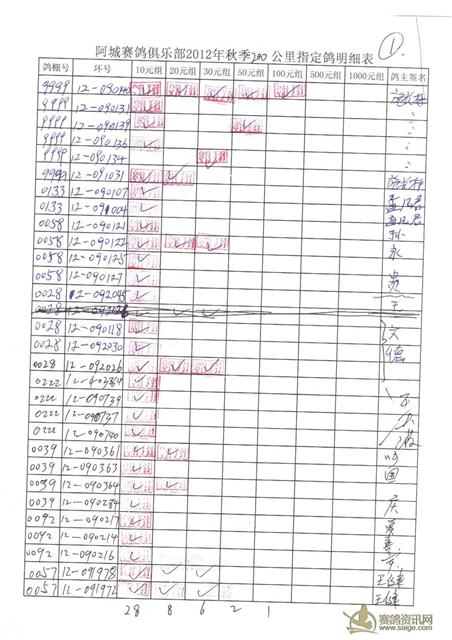 阿城赛鸽俱乐部2012年秋季200公里指定鸽明细表 ①
鸽棚号 环号 10元组 20元组 30元组 50元组 100元组 500元组 1000元组 鸽主签名
9999 12-090140 ✓ ✓ ✓ ✓ ✓
9999 12-090131 ✓
9999 12-090139 ✓ ✓
9999 12-090136 ✓
9999 12-090134 ✓
9999 12-091031 ✓ ✓
0133 12-090107 ✓
0133 12-091004 ✓
0058 12-090121 ✓ 孙
0058 12-090122 ✓ ✓ ✓ 永
0058 12-090125 ✓
0058 12-090127 ✓ 贵
0028 12-092045 ✓ 王
0028
0028 12-090118 ✓ 文
0028 12-092030 ✓ 德
0028 12-092026 ✓ ✓ ✓
0222 ✓
0222 12-090739 ✓
0222 12-090737 ✓
0222 12-090740 ✓
0039 12-090361 ✓ ✓
0039 12-090363 ✓ 国
0039 12-090364 ✓ ✓
0039 12-090284 ✓ 庆
0092 12-090217 ✓
0092 12-090214 ✓
0092 12-090216 ✓
0057 12-091978 ✓ ✓ ✓
0057 12-091972 ✓ ✓ ✓
28 8 6 2 1
赛鸽资讯网
www.saige.com